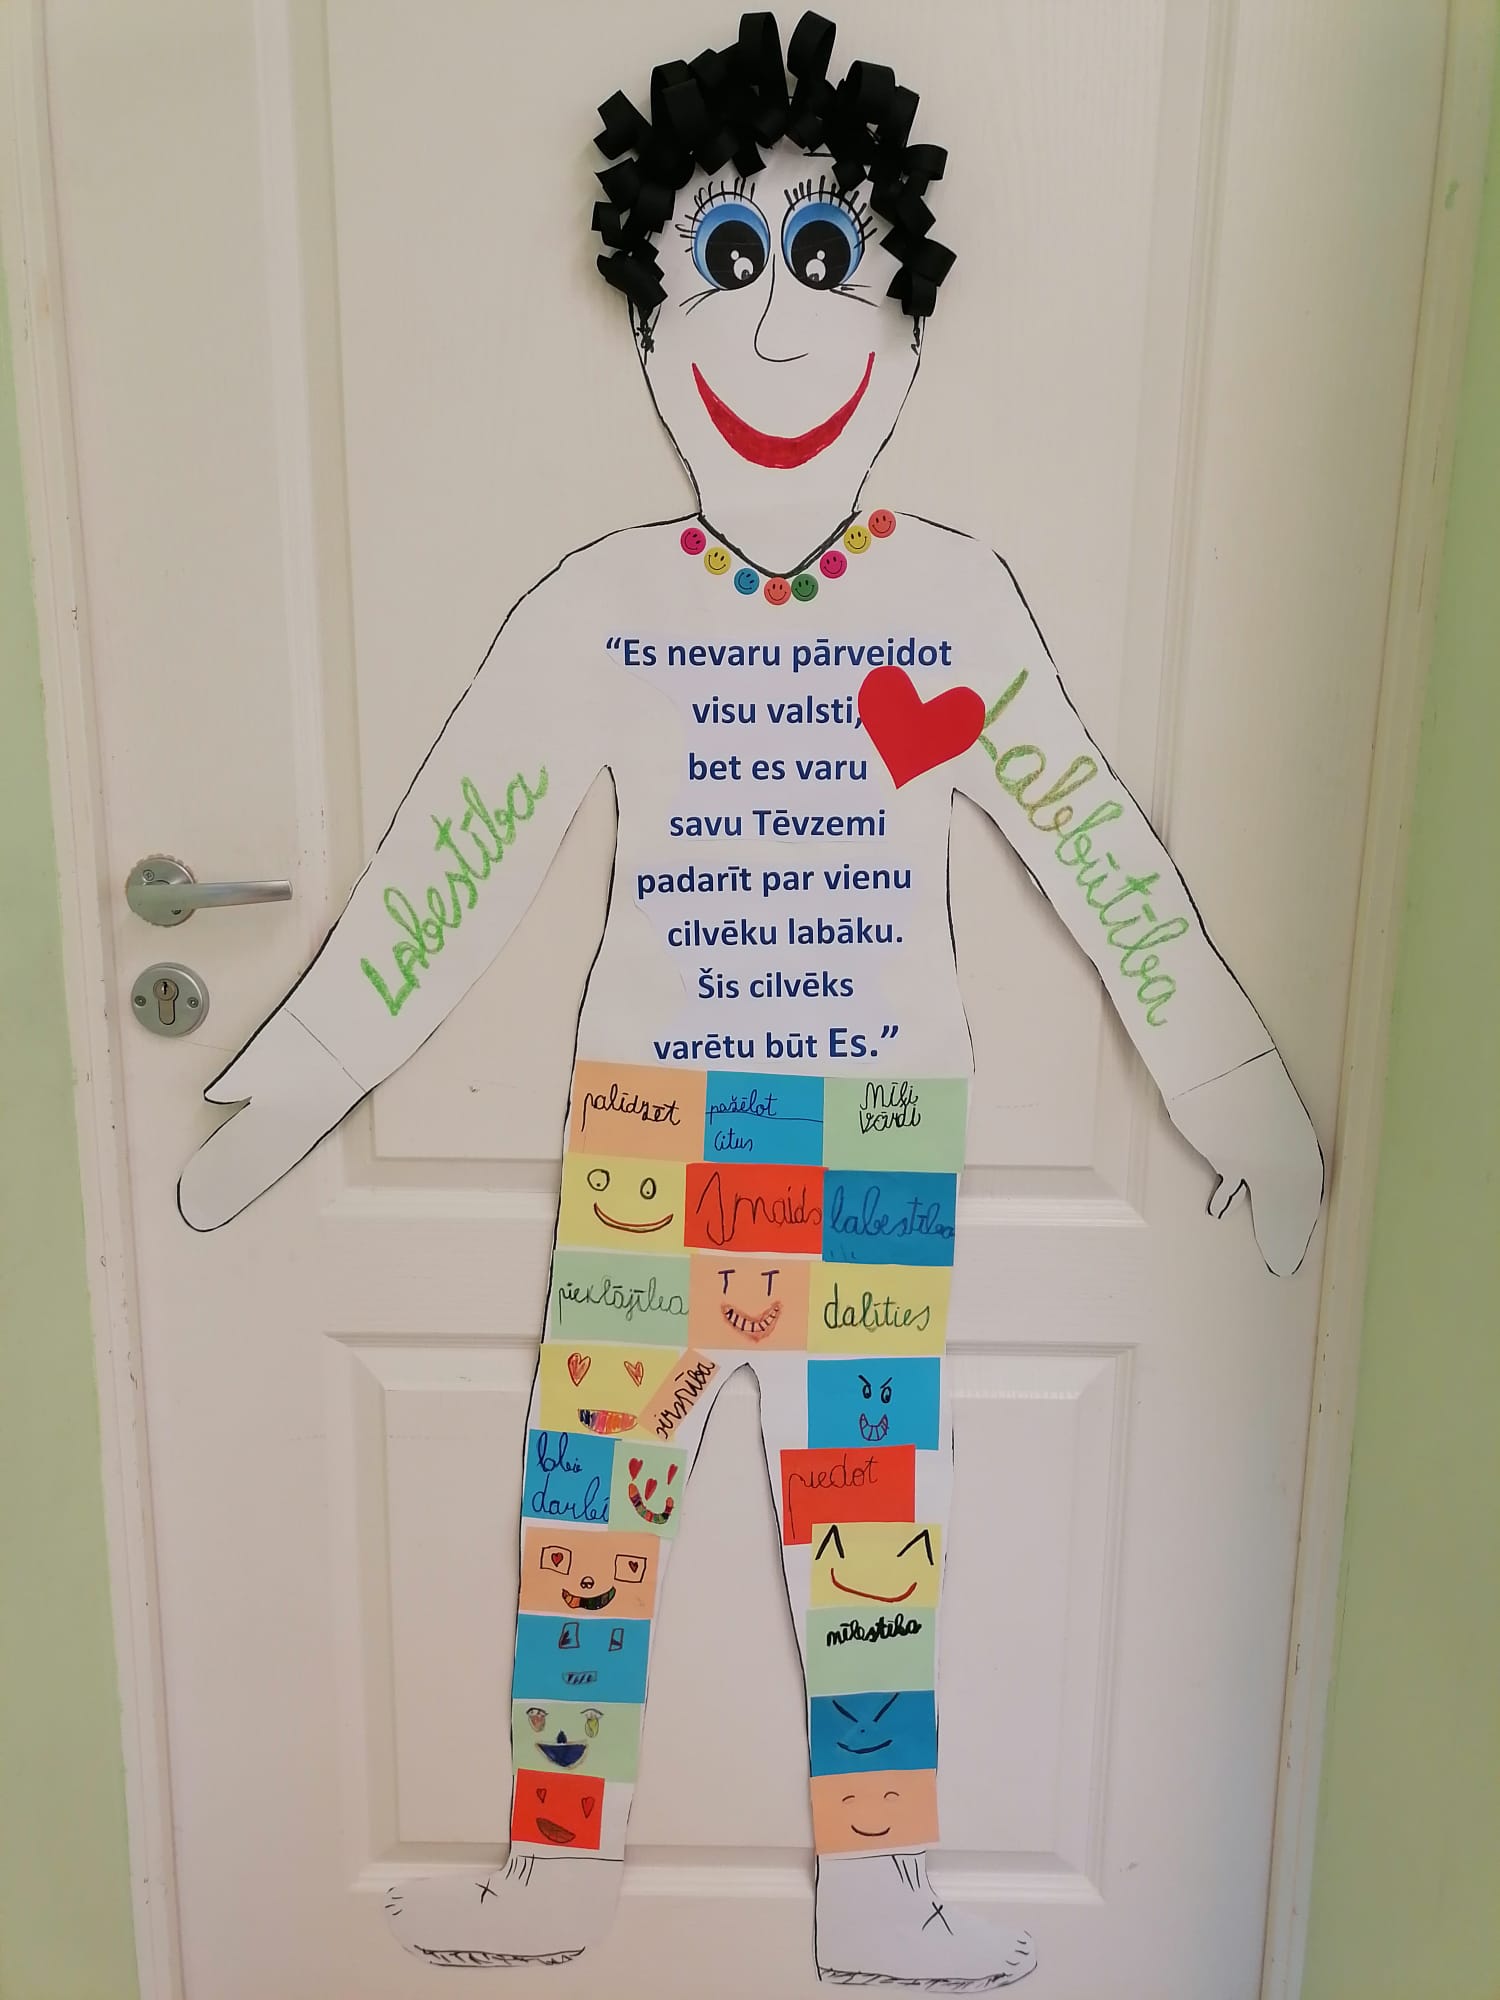 “Es nevaru pārveidot
visu valsti,
bet es varu
savu Tēvzemi
padarīt par vienu
cilvēku labāku.
Šis cilvēks
varētu būt Es.”
Labestība
Labbūtība
palīdzēt
pažēlot
citus
Mīļi
vārdi
Smaids
labestība
pieklājība
dalīties
sirsnība
labie
darbi
piedot
mīlestība